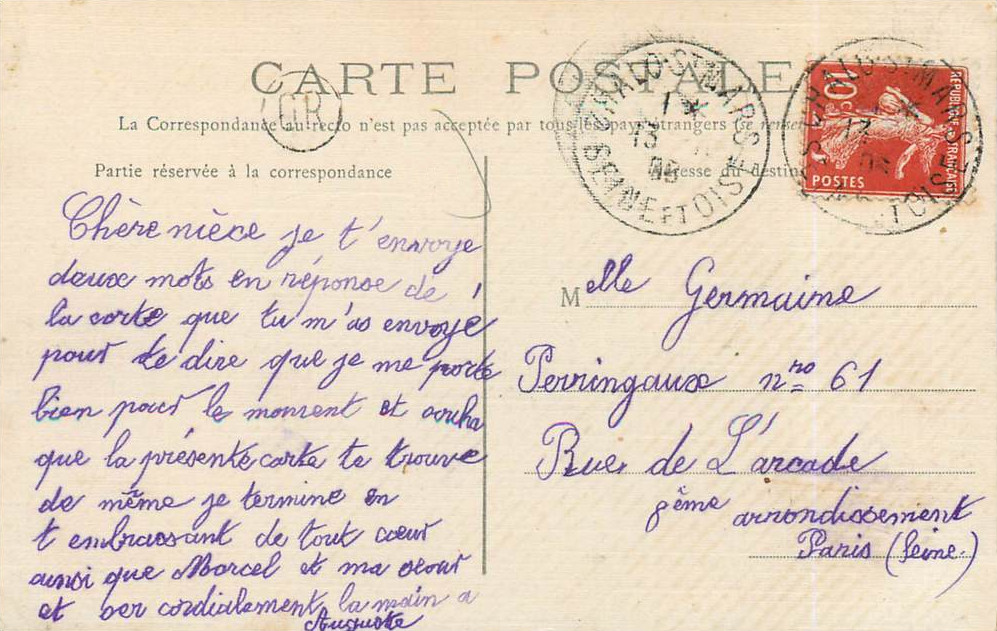 CARTE POSTALE
OR
La Correspondance au recto n'est pas acceptée par tous les pays étrangers (se
Partie réservée à la correspondance
Adresse du destin
CHALO-ST-MARS
1 *
13
SEINE ET OISE
CHALO-ST-MARS
13
OISE
10
REPUBLIQUE FRANÇAISE
POSTES
Chère nièce je t'envoye
deux mots en réponse de
la carte que tu m'as envoyé
pour te dire que je me porte
bien pour le moment et
que la présente carte te trouve
de même je termine en
t embrassant de tout cœur
ainsi que Marcel et ma sœur
et ser cordialement la main a
Auguste
Melle Germaine
Perringaux nro 61
Rue de L'arcade
8ème arrondissement
Paris (Seine.)